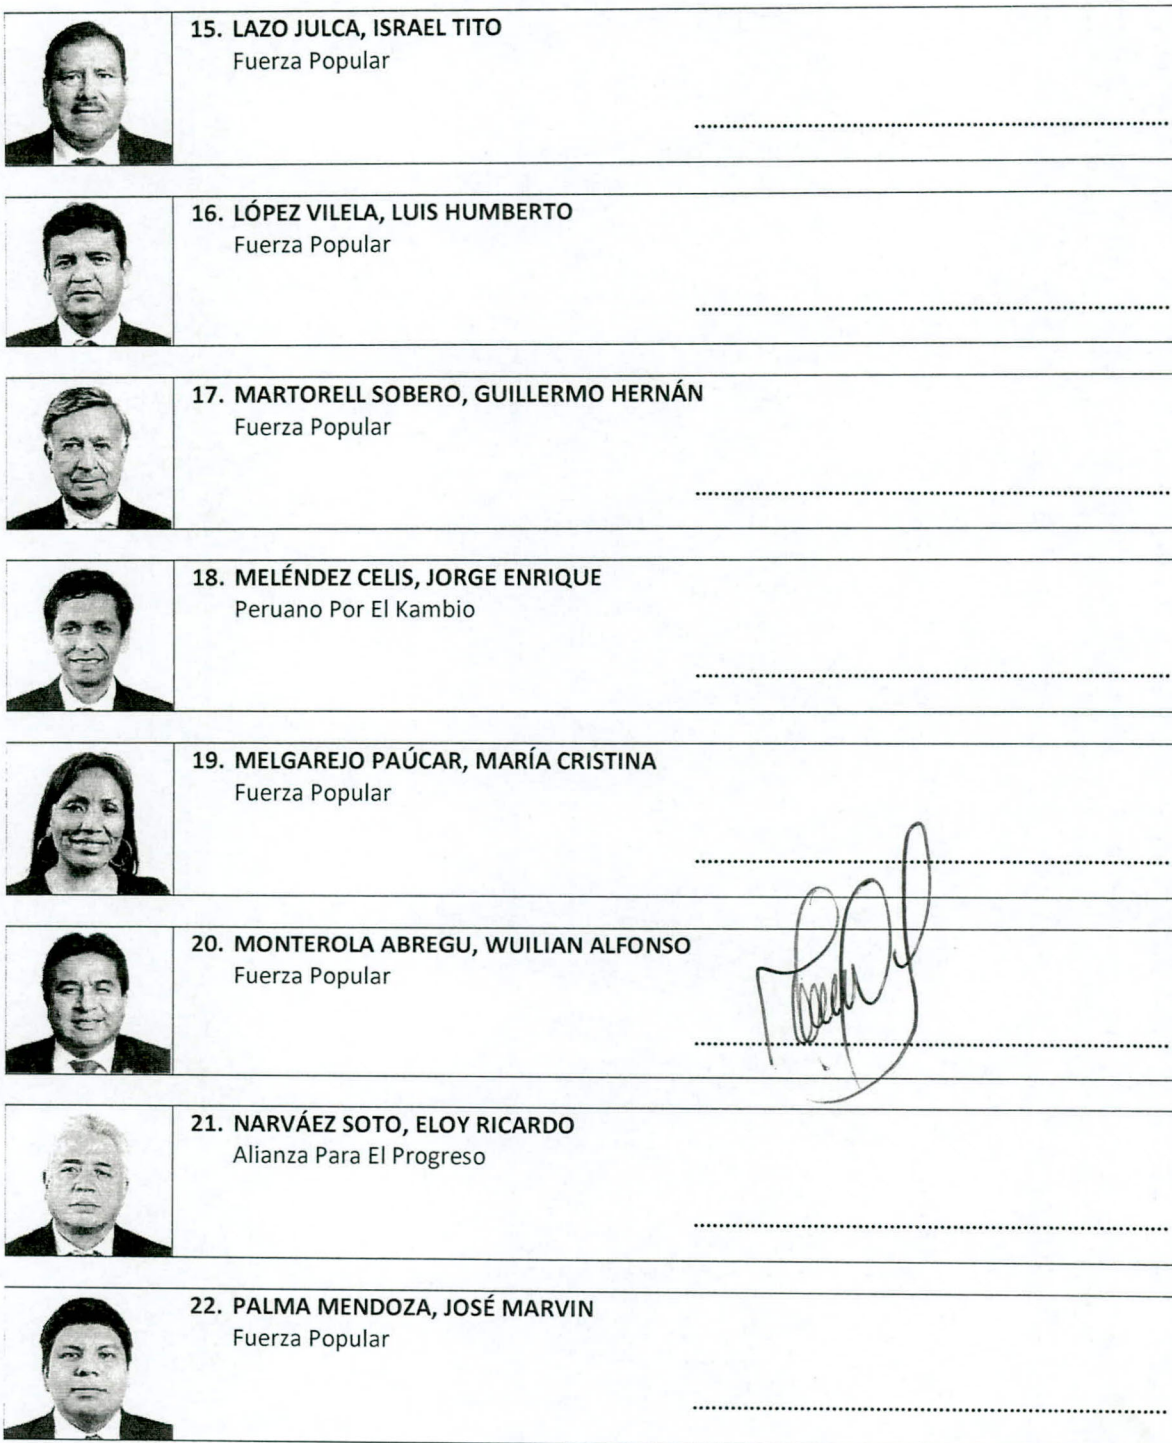 15. LAZO JULCA, ISRAEL TITO
Fuerza Popular
16. LÓPEZ VILELA, LUIS HUMBERTO
Fuerza Popular
17. MARTORELL SOBERO, GUILLERMO HERNÁN
Fuerza Popular
18. MELÉNDEZ CELIS, JORGE ENRIQUE
Peruano Por El Kambio
19. MELGAREJO PAÚCAR, MARÍA CRISTINA
Fuerza Popular
20. MONTEROLA ABREGU, WUILIAN ALFONSO
Fuerza Popular
21. NARVÁEZ SOTO, ELOY RICARDO
Alianza Para El Progreso
22. PALMA MENDOZA, JOSÉ MARVIN
Fuerza Popular